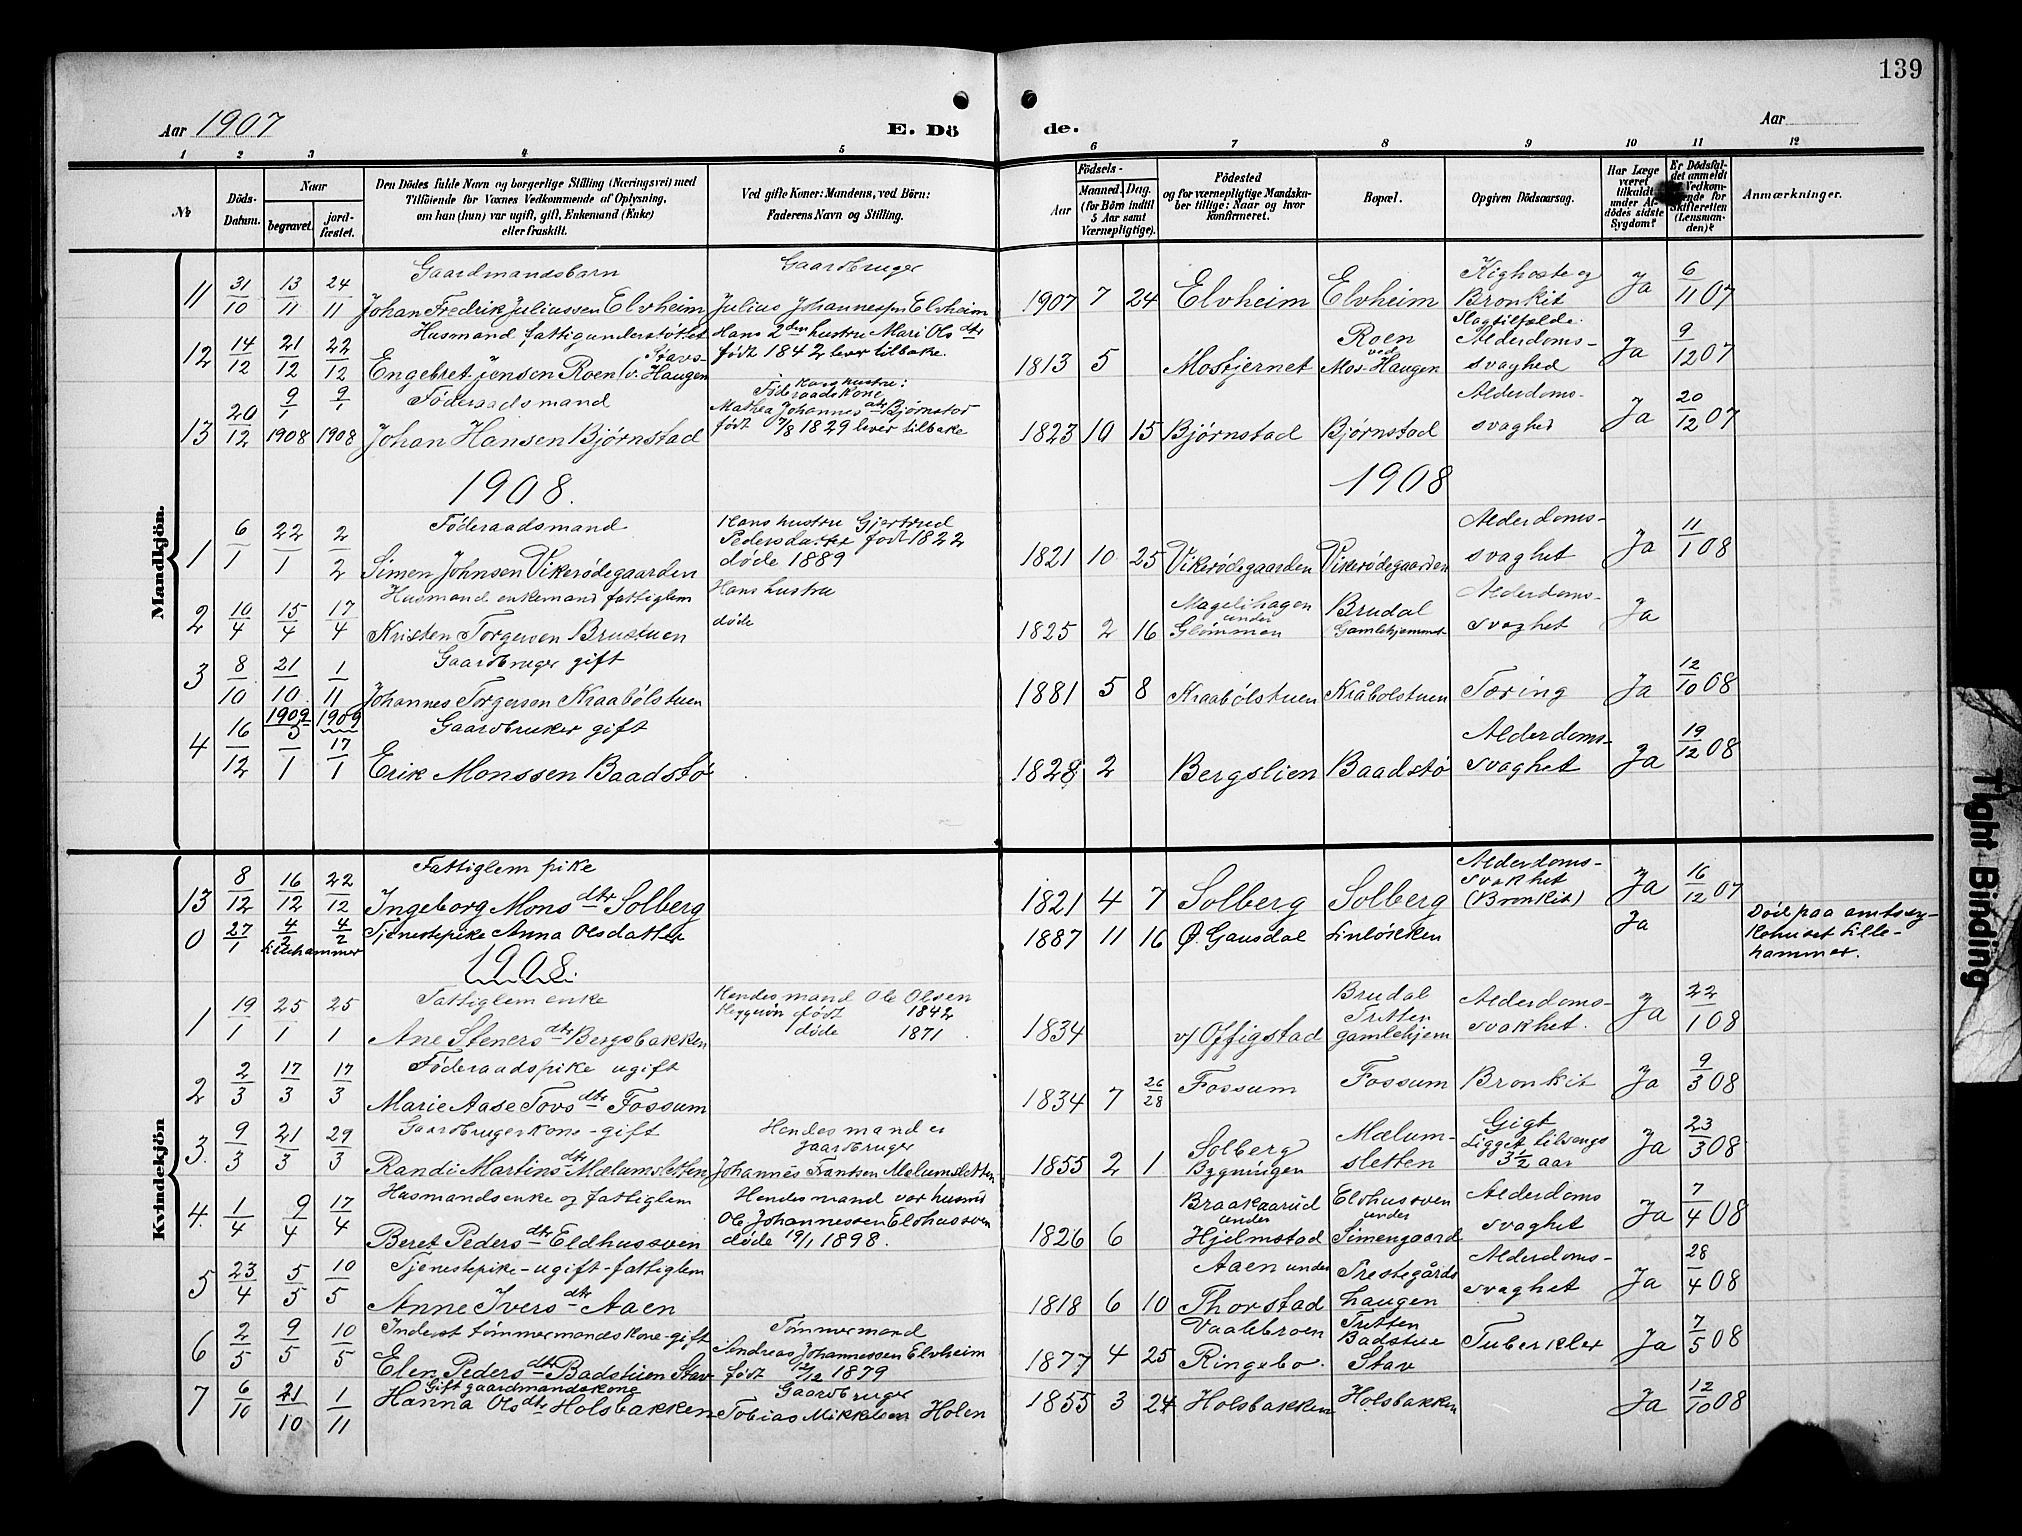 139
Aar 1907
E. Dö de.
Aar
1 2 3 4 5 6 7 8 9 10 11 12
№
Döds-Datum.
Naar
begravet.
jordfæstet.
Den Dödes fulde Navn og borgerlige Stilling (Næringsvei) med
Tilföiende for Voxnes Vedkommende af Oplysning,
om han (hun) var ugift, gift, Enkemand (Enke)
eller fraskilt.
Ved gifte Koner: Mandens, ved Börn:
Faderens Navn og Stilling.
Födsels-
Aar
Maaned. Dag.
(for Börn indtil
5 Aar samt
Værnepligtige).
Födested
og for værnepligtige Mandskaber tillige: Naar og hvor
konfirmeret.
Bopæl.
Opgiven Dödsaarsag.
Har Læge
været
tilkaldt
under Afdödes sidste
Sygdom?
Er Dödsfaldet anmeldt
Vedkommende for
Skifteretten
(Lensmanden)?
Anmærkninger.
Mandkjön.
Gaardmandsbarn Gaardbruger Kighoste og
11 31/10 13/11 24/11 Johan Fredrik Juliussen Elvheim Julius Johannesen Elvheim 1907 7 24 Elvheim Elvheim Bronkit Ja 6/11 07
Husmand fattigunderstøttet Hans 2den hustru Mari Olsdtr Roen Slagtilfælde. Alderdoms-
12 14/12 21/12 22/12 Engebret Jensen Roen v. Haugen født 1842 lever tilbake. 1813 5 Mostjernet ved Mos-Haugen svaghed Ja 9/12 07
Føderaadsmand Hans hustru: Føderaadskone Alderdoms-
13 20/12 9/1 1908 9/1 1908 Johan Hansen Bjørnstad Mathea Johannesdtr Bjørnstad født 7/8 1829 lever tilbake 1823 10 15 Bjørnstad Bjørnstad svaghed Ja 20/12 07
1908. 1908
Føderaadsmand Hans hustru Gjertrud Alderdoms-
1 6/1 22/1 2/2 Simen Johnsen Vikerødegaarden Pedersdatter født 1822 døde 1889 1821 10 25 Vikerødegaarden Vikerødegaarden svaghet Ja 11/1 08
Husmand enkemand fattiglem Hans hustru Magelihagen Brudal Alderdoms-
2 10/4 15/4 17/4 Kristen Torgersen Brustuen døde 1825 2 16 under Glømmen Gamlehjemmet svaghet Ja
Gaardbruger gift
3 8/10 21/10 1/11 Johannes Torgersen Kraabølstuen 1881 5 8 Kraabølstuen Kråbolstuen Tæring Ja 12/10 08
1909 1909 Gaardbruker gift Alderdoms-
4 16/12 5/1 17/1 Erik Monssen Baadstø 1828 2 Bergslien Baadstø svaghet Ja 19/12 08
Kvindekjön
Fattiglem pike Alderdoms-
13 8/12 16/12 22/12 Ingeborg Monsdtr Solberg 1821 4 7 Solberg Solberg svakhet (Bronkit) Ja 16/12 07
0 27/1 4/2 4/2 Lillehammer Tjenestepike Anna Olsdatter 1887 11 16 Ø. Gausdal Linløkken Ja Død paa amtssykehuset Lillehammer.
1908.
Fattiglem enke Hendes mand Ole Olsen Brudal Alderdoms-
1 19/1 25/1 25/1 Ane Stenersdtr Bergsbakken Heggerön født 1842 døde 1871. 1834 v/ Offigstad Tretten gamlehjem svakhet. Ja 22/1 08
Føderaadspike ugift
2 2/3 17/3 17/3 Marie Aase Tovsdtr Fossum 1834 7 26/28 Fossum Fossum Bronkit Ja 9/3 08
Gaardbrugerkone - gift Hendes mand er gaardbruger Gigt
3. 9/3 21/3 29/3 Randi Martinsdtr Mælumsletten Johannes Frantsen Melumsletten 1855 2 1. Solberg Bygningen Mælumsletten Ligget tilsengs 3½ aar Ja 23/3 08
Husmandsenke og fattiglem Hendes mand var husmd Braakaarud Elvhussven Alderdoms
4. 1/4 9/4 17/4 Beret Pedersdtr Eldhussven Ole Johannessen Elvhussven døde 19/1 1898. 1826 6 under Hjelmstad under Simengaard svaghet Ja 7/4 08
Tjenestepike - ugift - fattiglem Aaen under Prestegårds Alderdoms-
5 23/4 5/5 10/5 Anne Iversdtr Aaen 1818 6 10 Thorstad haugen svaghet Ja 28/4 08
Inderst tømmermandskone - gift Tømmermand Vaalebroen Tretten
6 2/5 9/5 10/5 Elen Pedersdtr Badstuen Stav Andreas Johannessen Elvheim født 12/12 1879 1877 4 25 Ringebo. Badstue Stav Tuberkler Ja 7/5 08
Gift gaardmandskone Gaardbruger
7 6/10 21/10 1/11 Hanna Olsdtr Holsbakken Tobias Mikkelsen Holen 1855 3 24 Holsbakken Holsbakken Ja 12/10 08
Tight Binding